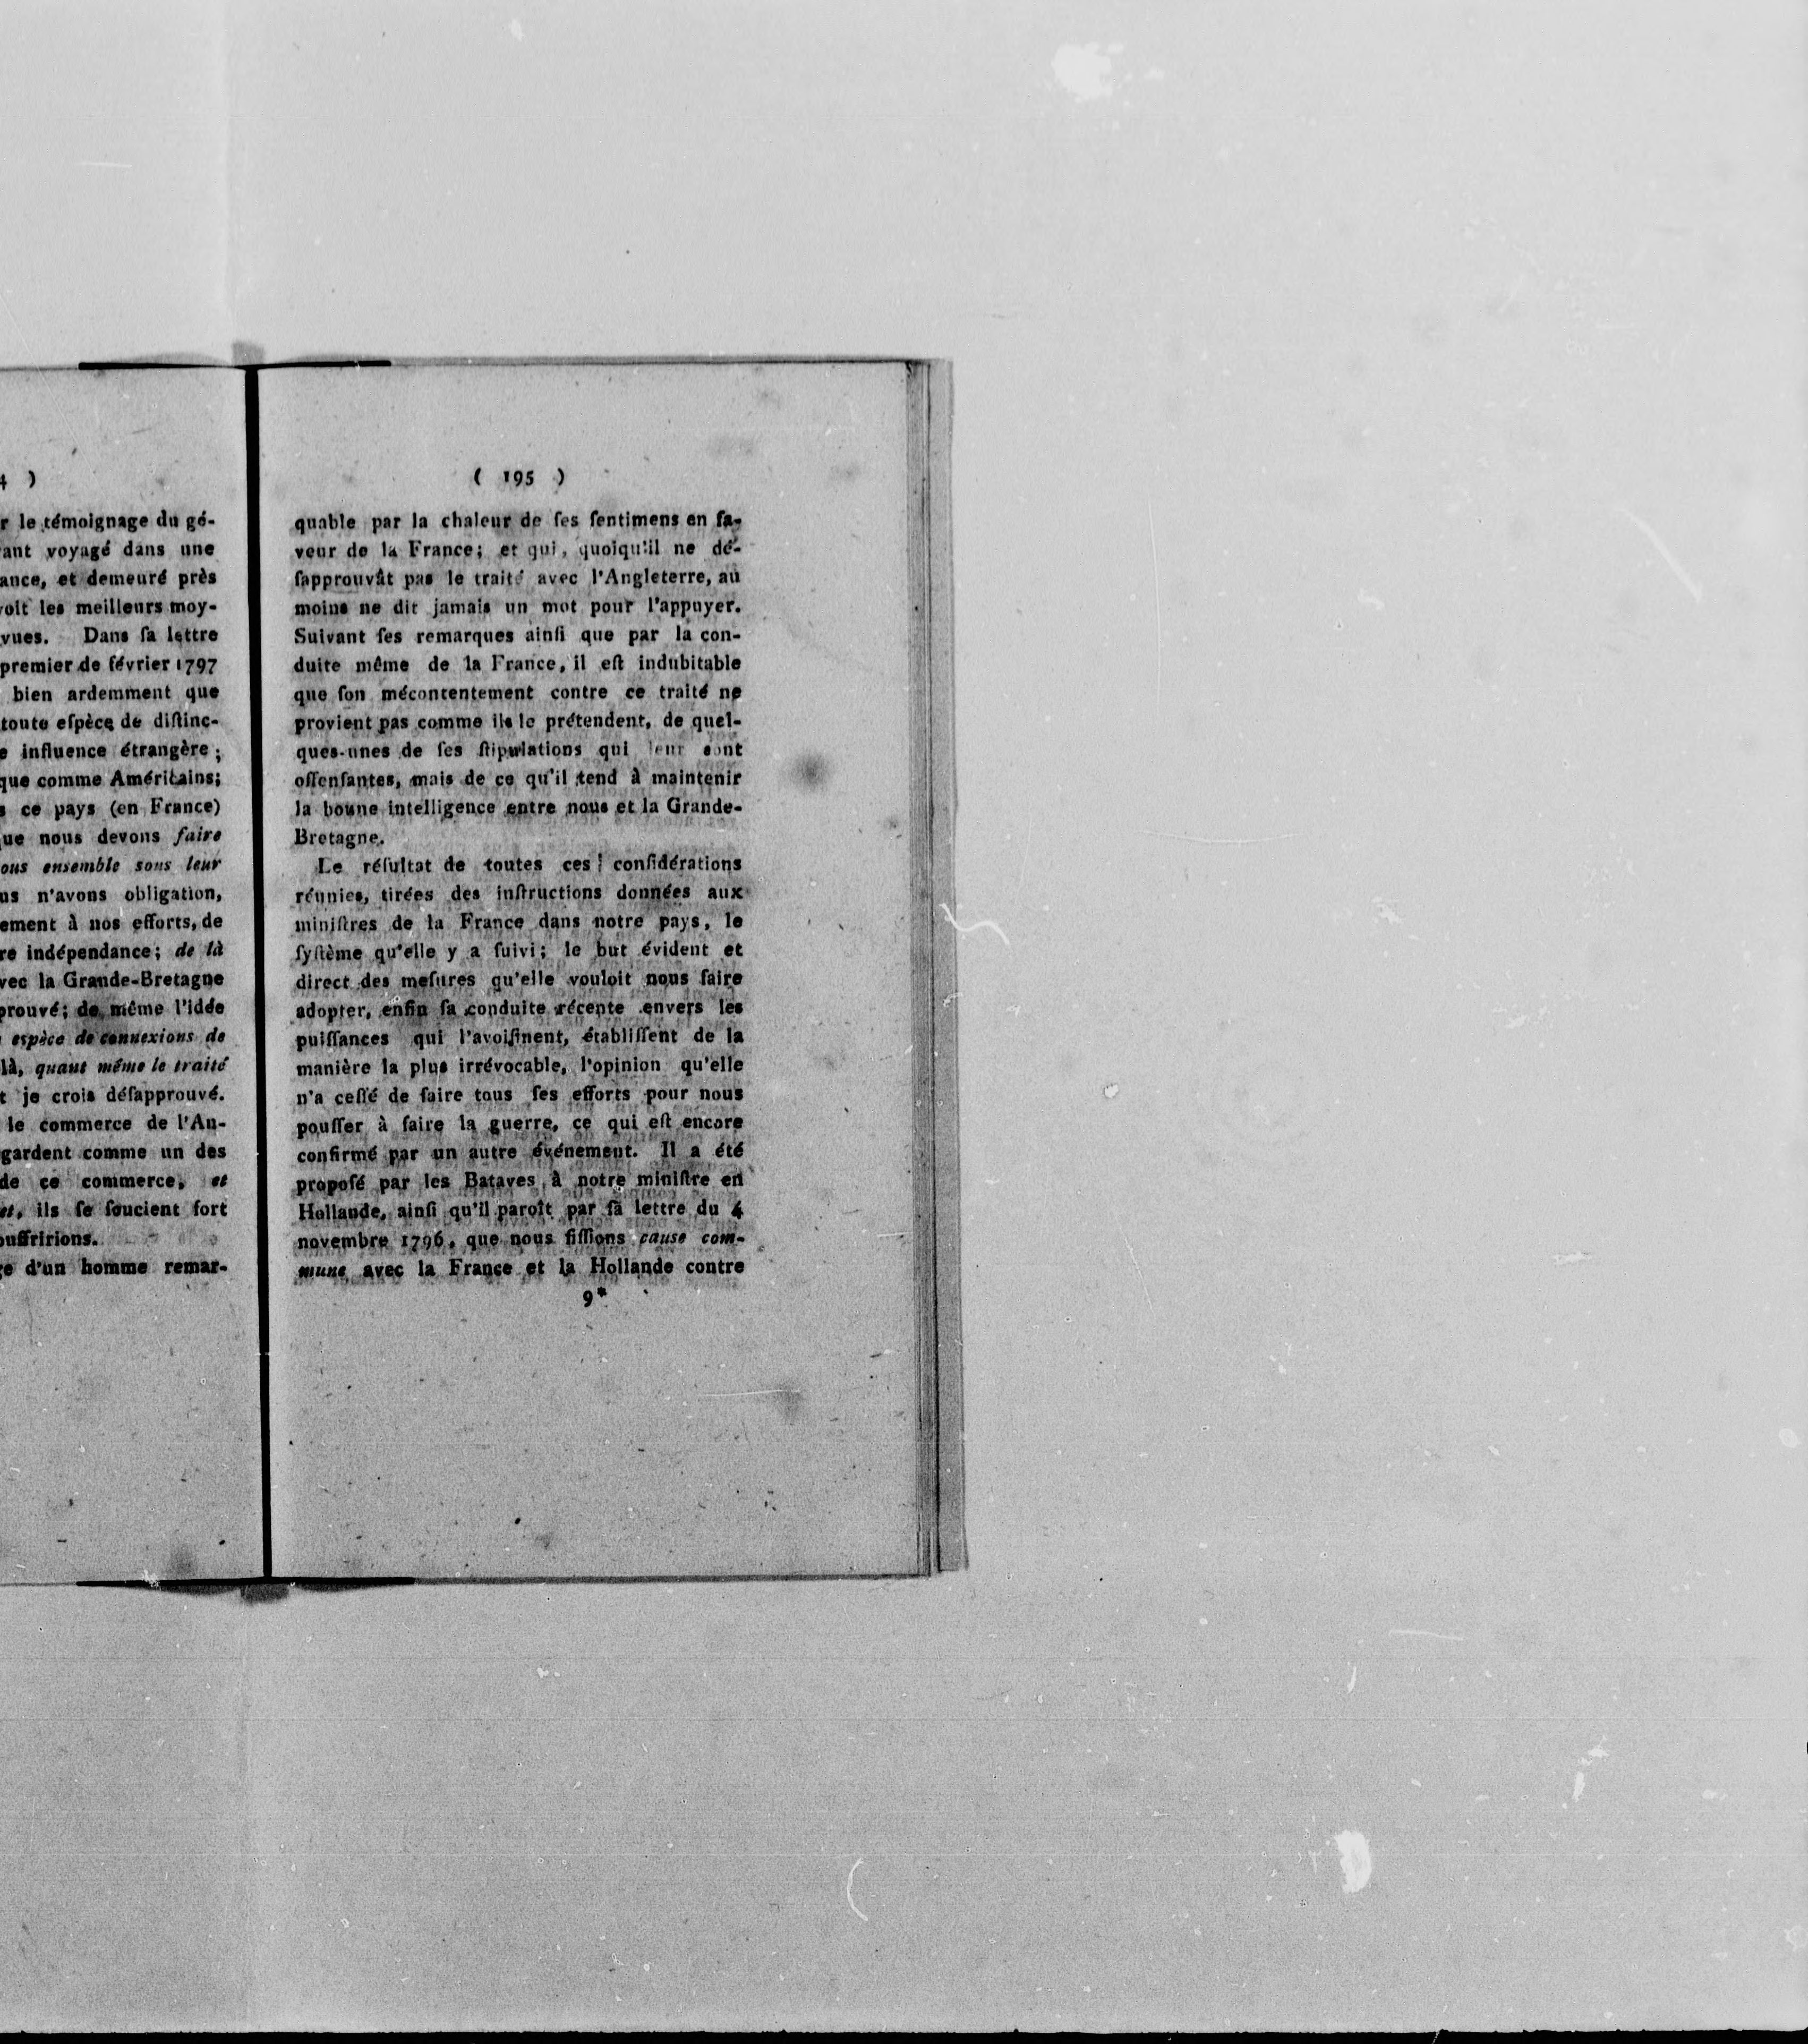 4 )
r le témoignage du gé-
ant voyagé dans une
ance, et demeuré près
voit les meilleurs moy-
vues. Dans ſa lettre
premier de février 1797
bien ardemment que
toute eſpèce de diſtinc-
e influence étrangère;
que comme Américains;
s ce pays (en France)
que nous devons faire
ous ensemble sous leur
us n'avons obligation,
ement à nos efforts, de
re indépendance; de là
vec la Grande-Bretagne
prouvé; de même l'idée
espèce de connexions de
là, quant même le traité
t je crois déſapprouvé.
le commerce de l'An-
gardent comme un des
de ce commerce, et
et, ils ſe ſoucient fort
ouffririons.
ge d'un homme remar-
( 195 )
quable par la chaleur de ſes ſentimens en fa-
veur de la France; et qui, quoiqu'il ne dé-
ſapprouvât pas le traité avec l'Angleterre, au
moins ne dit jamais un mot pour l'appuyer.
Suivant ſes remarques ainſi que par la con-
duite même de la France, il eſt indubitable
que ſon mécontentement contre ce traité ne
provient pas comme ils le prétendent, de quel-
ques-unes de ſes ſtipulations qui leur sont
offenſantes, mais de ce qu'il tend à maintenir
la bonne intelligence entre nous et la Grande-
Bretagne.
Le réſultat de toutes ces conſidérations
réunies, tirées des inſtructions données aux
miniſtres de la France dans notre pays, le
ſyſtème qu'elle y a ſuivi; le but évident et
direct des meſures qu'elle vouloit nous faire
adopter, enfin ſa conduite récente envers les
puiſſances qui l'avoiſinent, établiſſent de la
manière la plus irrévocable, l'opinion qu'elle
n'a ceſſé de faire tous ſes efforts pour nous
pouſſer à faire la guerre, ce qui eſt encore
confirmé par un autre événement. Il a été
propoſé par les Bataves à notre miniſtre en
Hollande, ainſi qu'il paroît par ſa lettre du 4
novembre 1796, que nous fiſſions cause com-
mune avec la France et la Hollande contre
9*